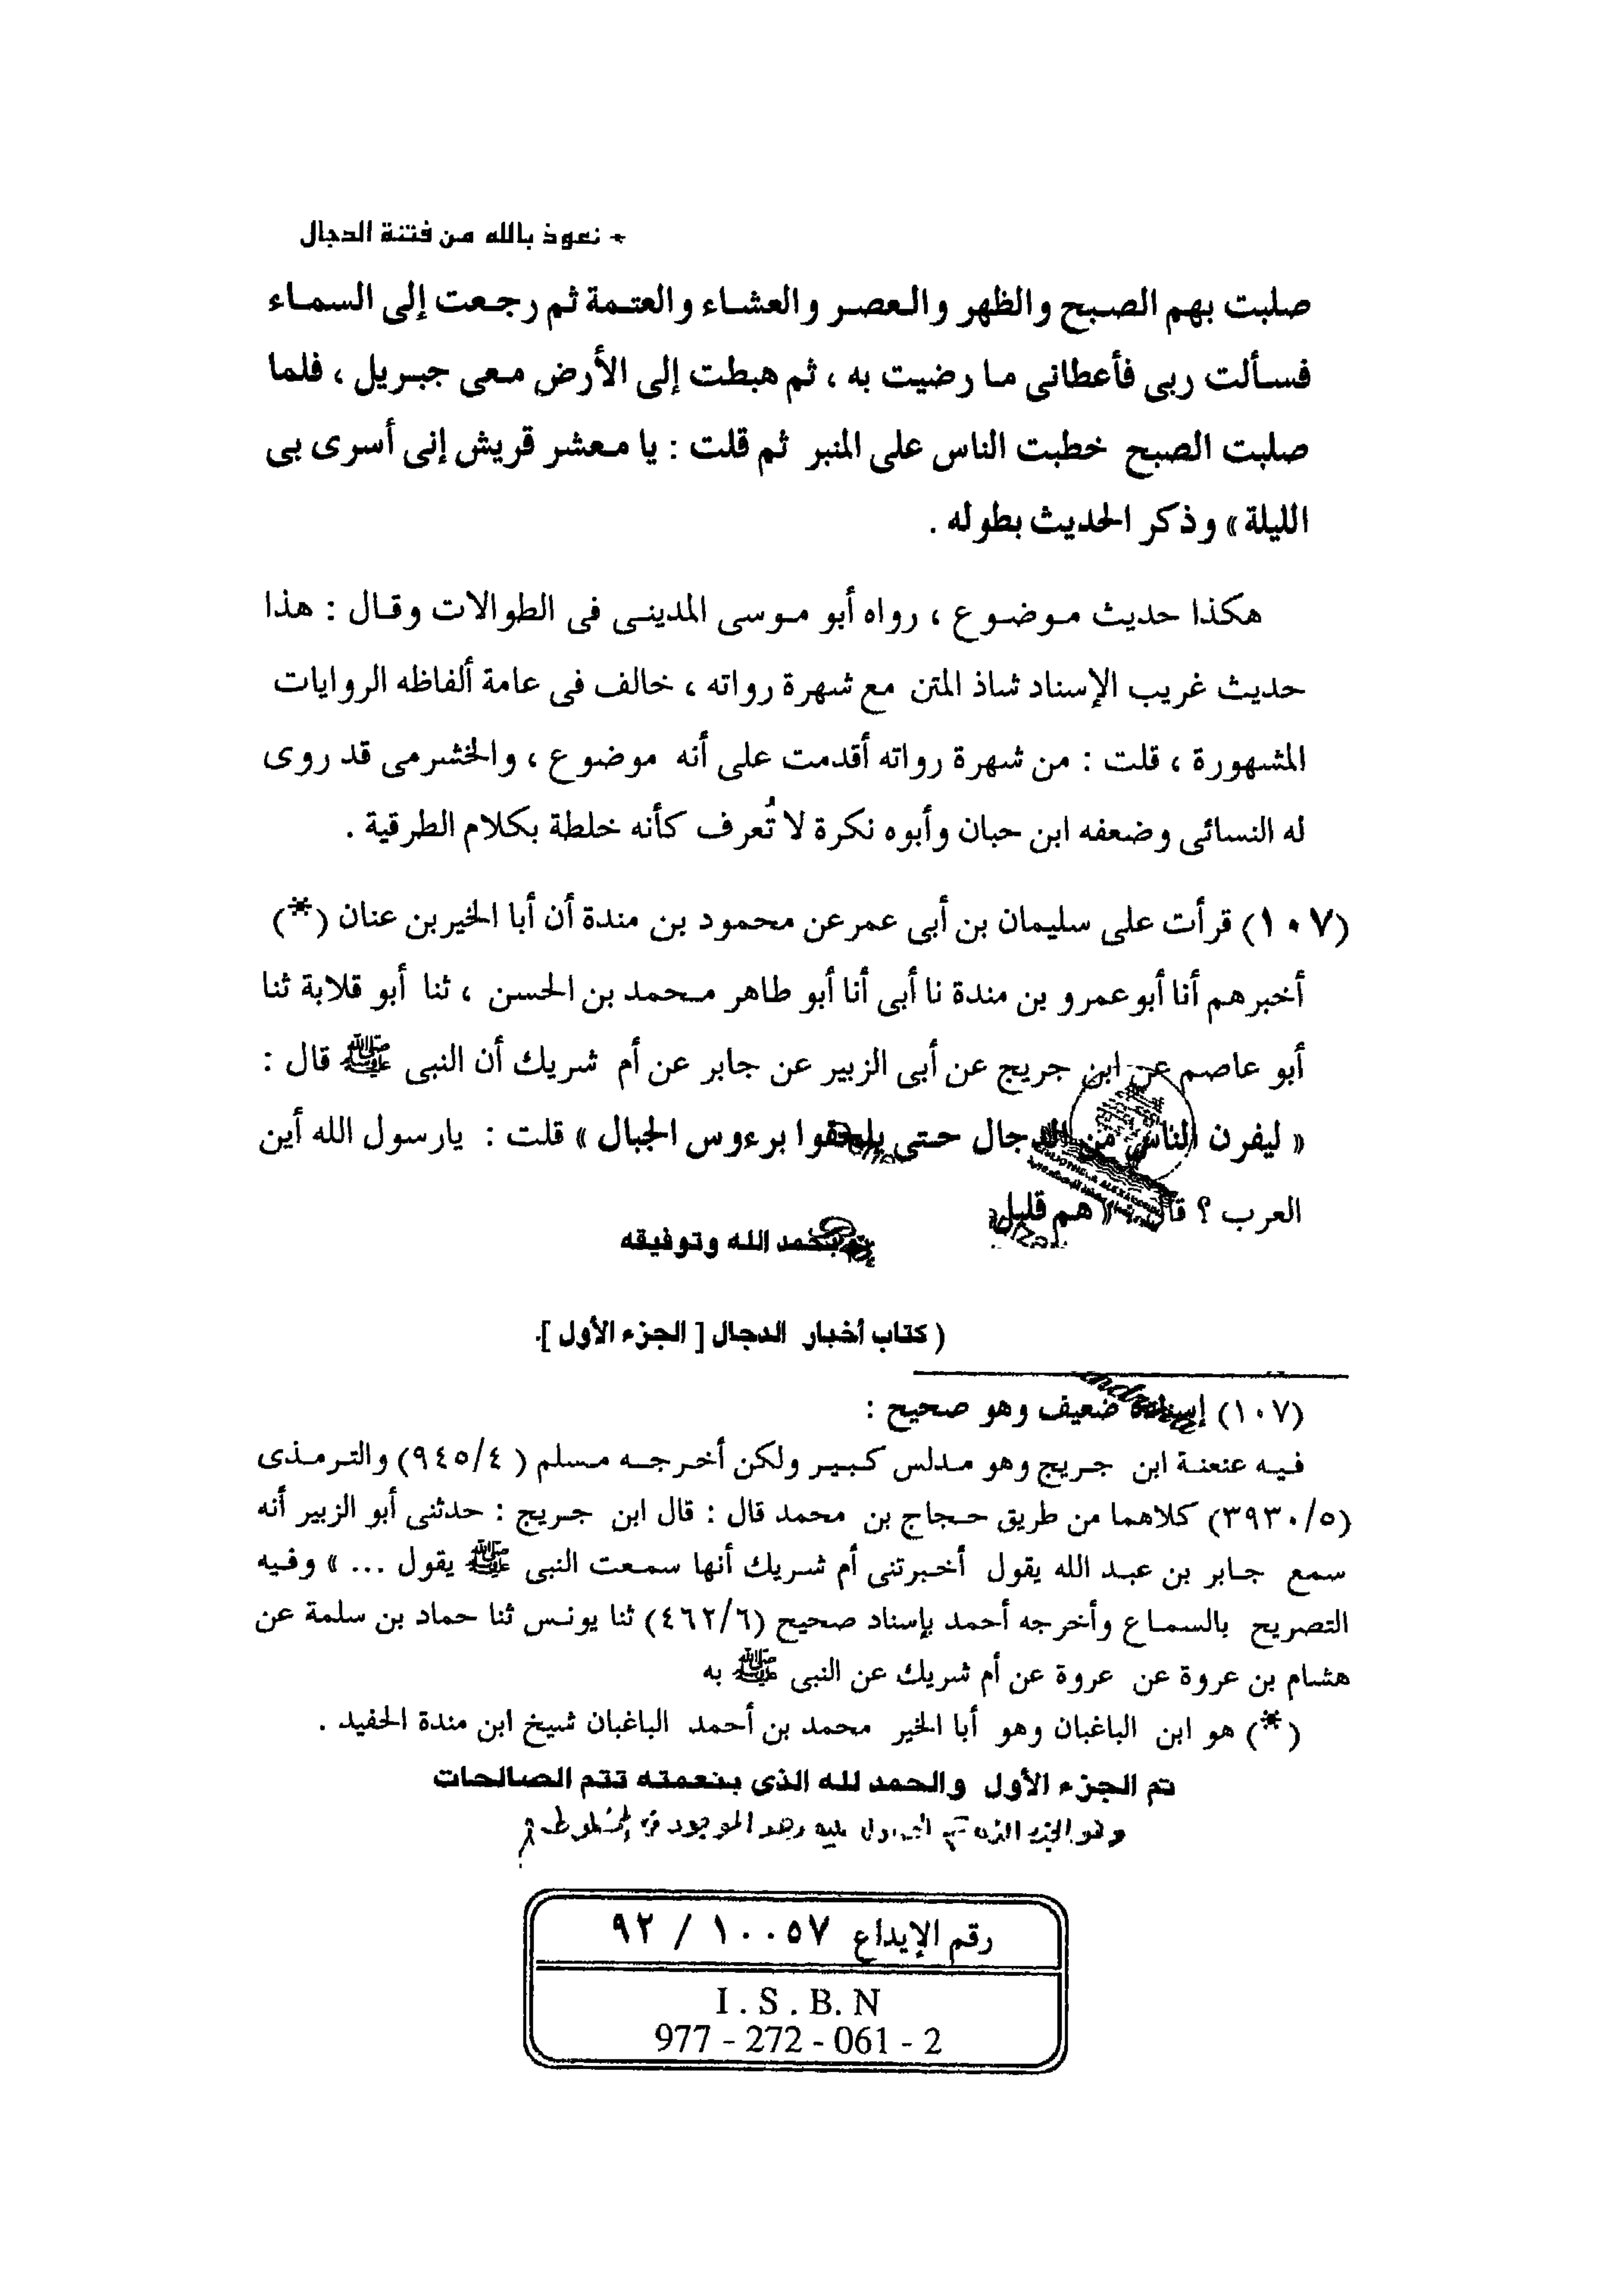 + نعوذ بالله من فتنة الدجال
صليت بهم الصبح والظهر والعصر والعشاء والعتمة ثم رجعت إلى السماء
فسألت ربى فأعطانى ما رضيت به ، ثم هبطت إلى الأرض معى جبريل ، فلما
صليت الصبح خطبت الناس على المنبر ثم قلت : يا معشر قريش إنى أسرى بى
الليلة » وذكر الحديث بطوله .
هكذا حديث موضوع ، رواه أبو موسى المدينى فى الطوالات وقال : هذا
حديث غريب الإسناد شاذ المتن مع شهرة رواته ، خالف فى عامة ألفاظه الروايات
المشهورة ، قلت : من شهرة رواته أقدمت على أنه موضوع ، والخشرمى قد روى
له النسائى وضعفه ابن حبان وأبوه نكرة لا تُعرف كأنه خلطة بكلام الطرقية .
(١٠٧) قرأت على سليمان بن أبى عمر عن محمود بن مندة أن أبا الخير بن عنان (*)
أخبرهم أنا أبو عمرو بن مندة نا أبى أنا أبو طاهر محمد بن الحسن ، ثنا أبو قلابة ثنا
أبو عاصم عن ابن جريج عن أبى الزبير عن جابر عن أم شريك أن النبى ﷺ قال :
« ليفرن الناس من الدجال حتى يلحقوا برءوس الجبال » قلت : يارسول الله أين
العرب ؟ قال : « هم قليل
بحمد الله وتوفيقه
( كتاب أخبار الدجال [ الجزء الأول ].
(١٠٧) إسناده ضعيف وهو صحيح :
فيه عنعنة ابن جريج وهو مدلس كبير ولكن أخرجه مسلم ( ٩٤٥/٤) والترمذى
(٣٩٣٠/٥) كلاهما من طريق حجاج بن محمد قال : قال ابن جريج : حدثنى أبو الزبير أنه
سمع جابر بن عبد الله يقول أخبرتنى أم شريك أنها سمعت النبى ﷺ يقول ... » وفيه
التصريح بالسماع وأخرجه أحمد بإسناد صحيح (٤٦٢/٦) ثنا يونس ثنا حماد بن سلمة عن
هشام بن عروة عن عروة عن أم شريك عن النبى ﷺ به
(*) هو ابن الباغبان وهو أبا الخير محمد بن أحمد الباغبان شيخ ابن مندة الحفيد .
تم الجزء الأول والحمد لله الذى بنعمته تتم الصالحات
وهو الجزء الذى تم
رقم الإيداع ١٠٠٥٧ / ٩٢
I . S . B. N
977 - 272 - 061 - 2